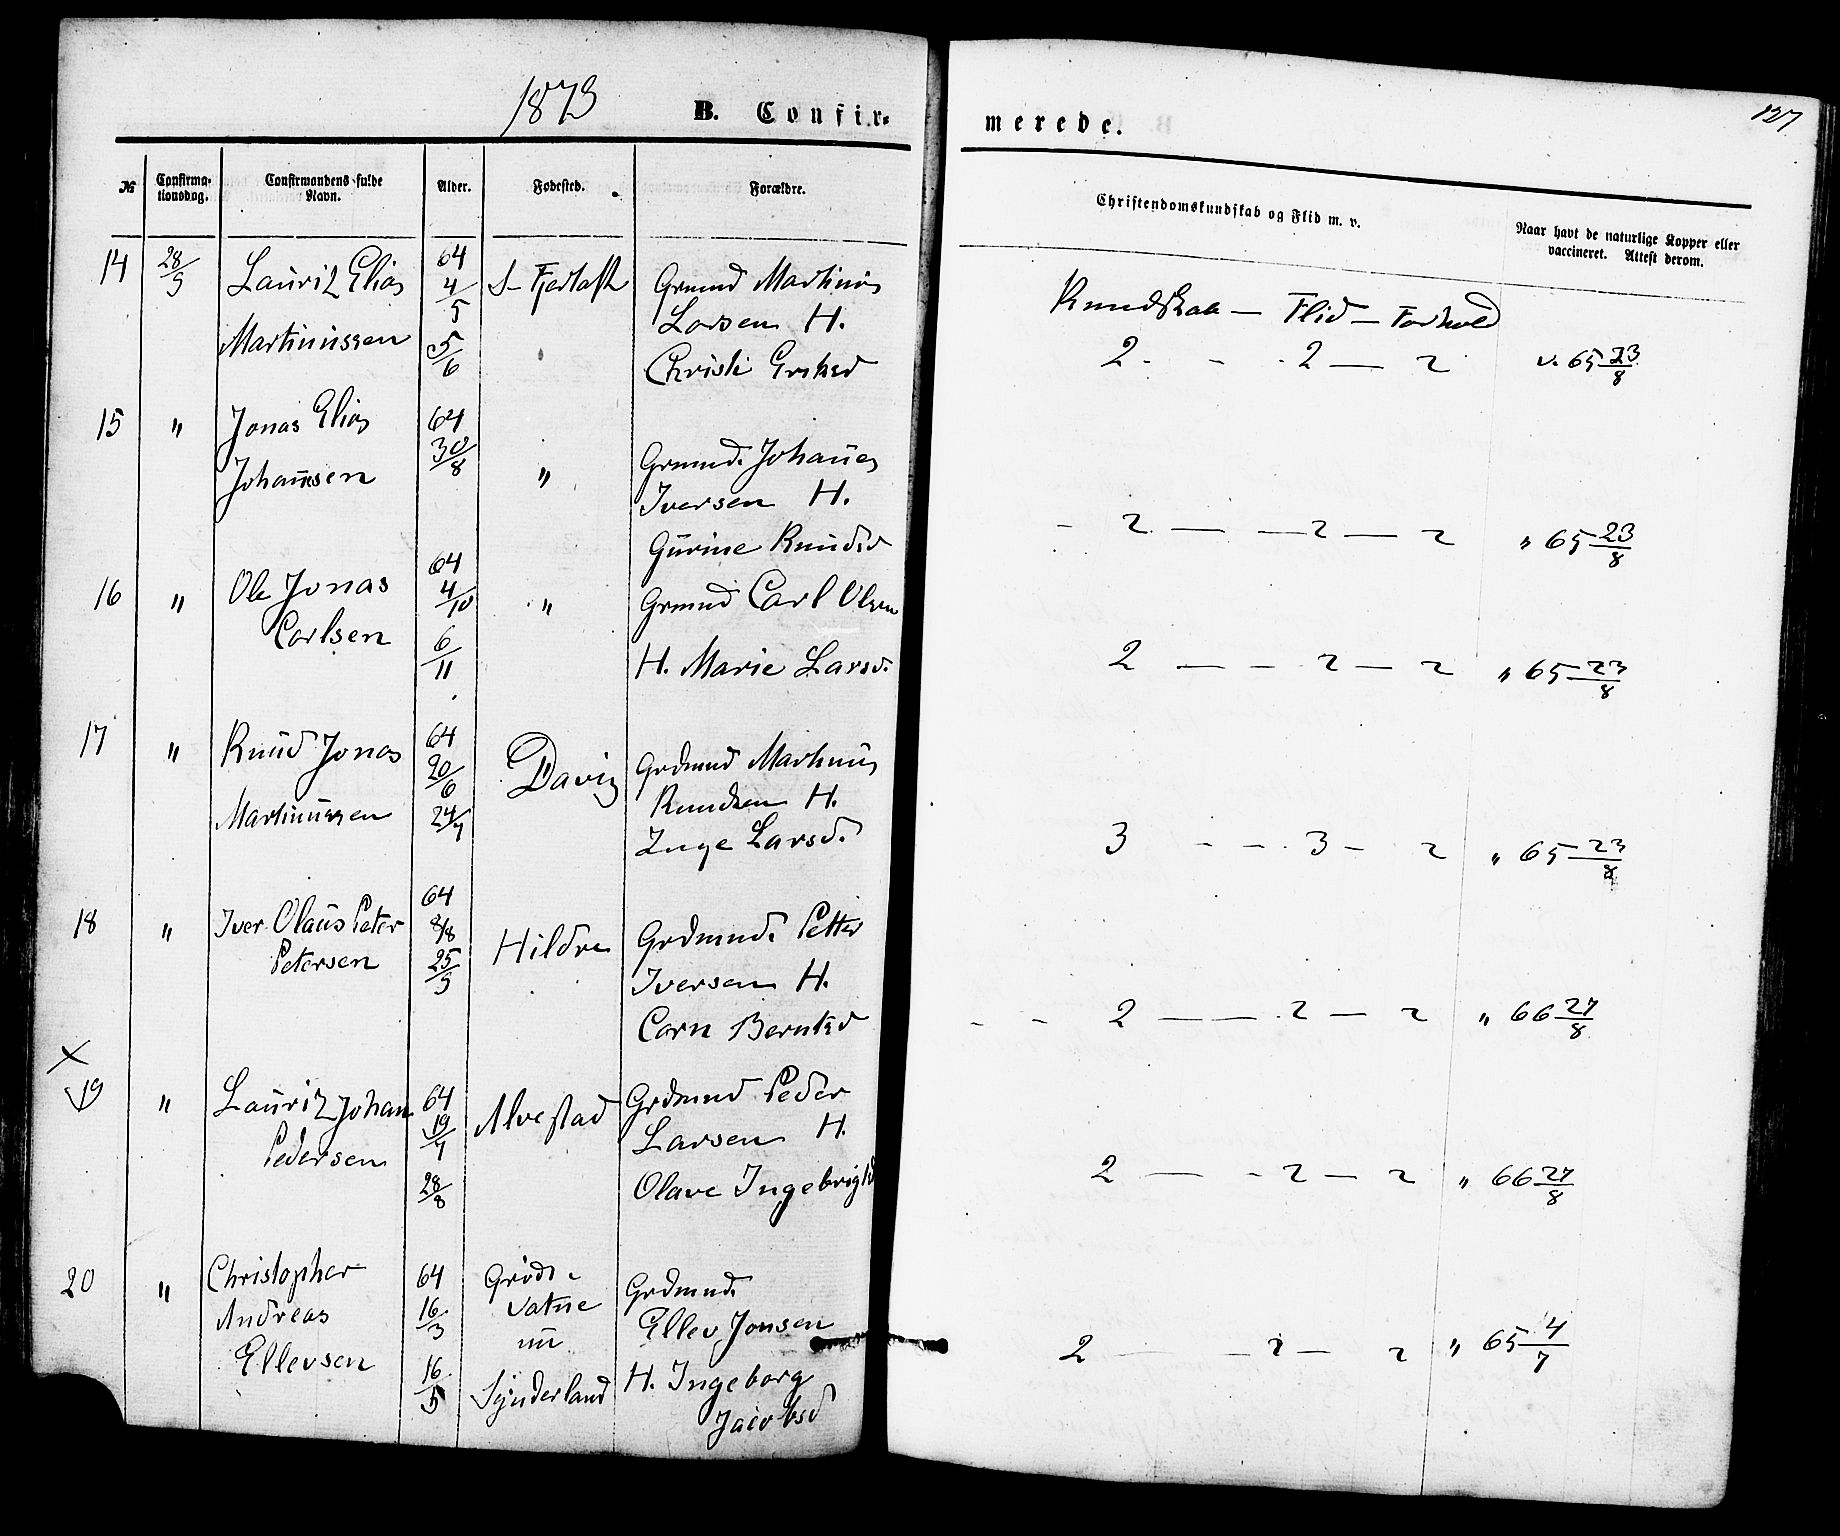 1873
B. Confir-
merede.
127
№
Confirma-
tionsdag.
Confirmandens fulde
Navn.
Alder.
Fødested.
Forældre.
Christendomskundskab og Flid m. v.
Naar havt de naturlige Kopper eller
vaccineret. Attest derom.
Kundskab — Flid — Forhold
14 28/9 Lauritz Elias 64 4/5 S- Fjørtoft Grmnd Martinus
Larsen H.
Martinussen 5/6 Christi
2 - - 2 — 2 v. 65 23/8
15 " Jonas Elias 64
30/8 " Grmnd. Johannes
Johannsen
Iversen H.
Gurine Knudsd
- 2 — — 2 — 2 " 65 23/8
16 " Ole Jonas 64 4/10 " Grmnd Carl Olsen
Carlsen 6/11
H. Marie Larsd.
2 — - 2 — 2 " 65 23/8
17 " Knud Jonas 64 20/6 Davig Grdmnd Martinus
Martinussen 24/7 Knudsen H.
Inge Larsd.
3 - - 3 - 2 " 65 23/8
18 " Iver Olaus Peter 64 8/8 Hildre Grdmnd. Petter
Petersen 25/9
Iversen H.
Carn Berntsd
- - 2 — — 2 — 2 " 66 27/8
X
19 " Lauritz Johan 64 19/7 Alvestad Grdmnd Peder
Pedersen Larsen H.
28/8 Olave Ingebrigtd
2 — - 2 — 2 " 66 27/8
20 " Christopher 64
Andreas 16/3 vatne Grdmnd.
nu Ellev Jonsen
Ellevsen 16/5 Synderland H. Ingeborg
Jacobsd
2 — - 2 — 2 " 65 4/7